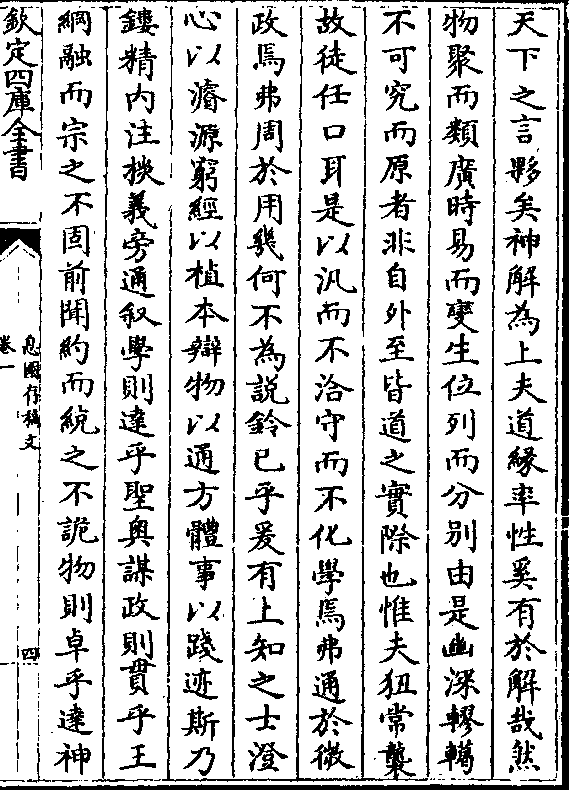 天下之言夥矣神解為上夫道縁率性奚有於解哉然
物聚而類廣時易而變生位列而分别由是幽深轇轕
不可究而原者非自外至皆道之實際也惟夫狃常襲
故徒任口耳是以汎而不洽守而不化學焉弗通於微
政焉弗周於用幾何不為説鈴已乎爰有上知之士澄
心以濬源窮經以植本辯物以通方體事以踐迹斯乃
鏤精内注棪義旁通叙學則達乎聖奥謀政則貫乎王
綱融而宗之不固前聞約而統之不詭物則卓乎達神
欽定四庫全書
息園存稿文
卷一
四